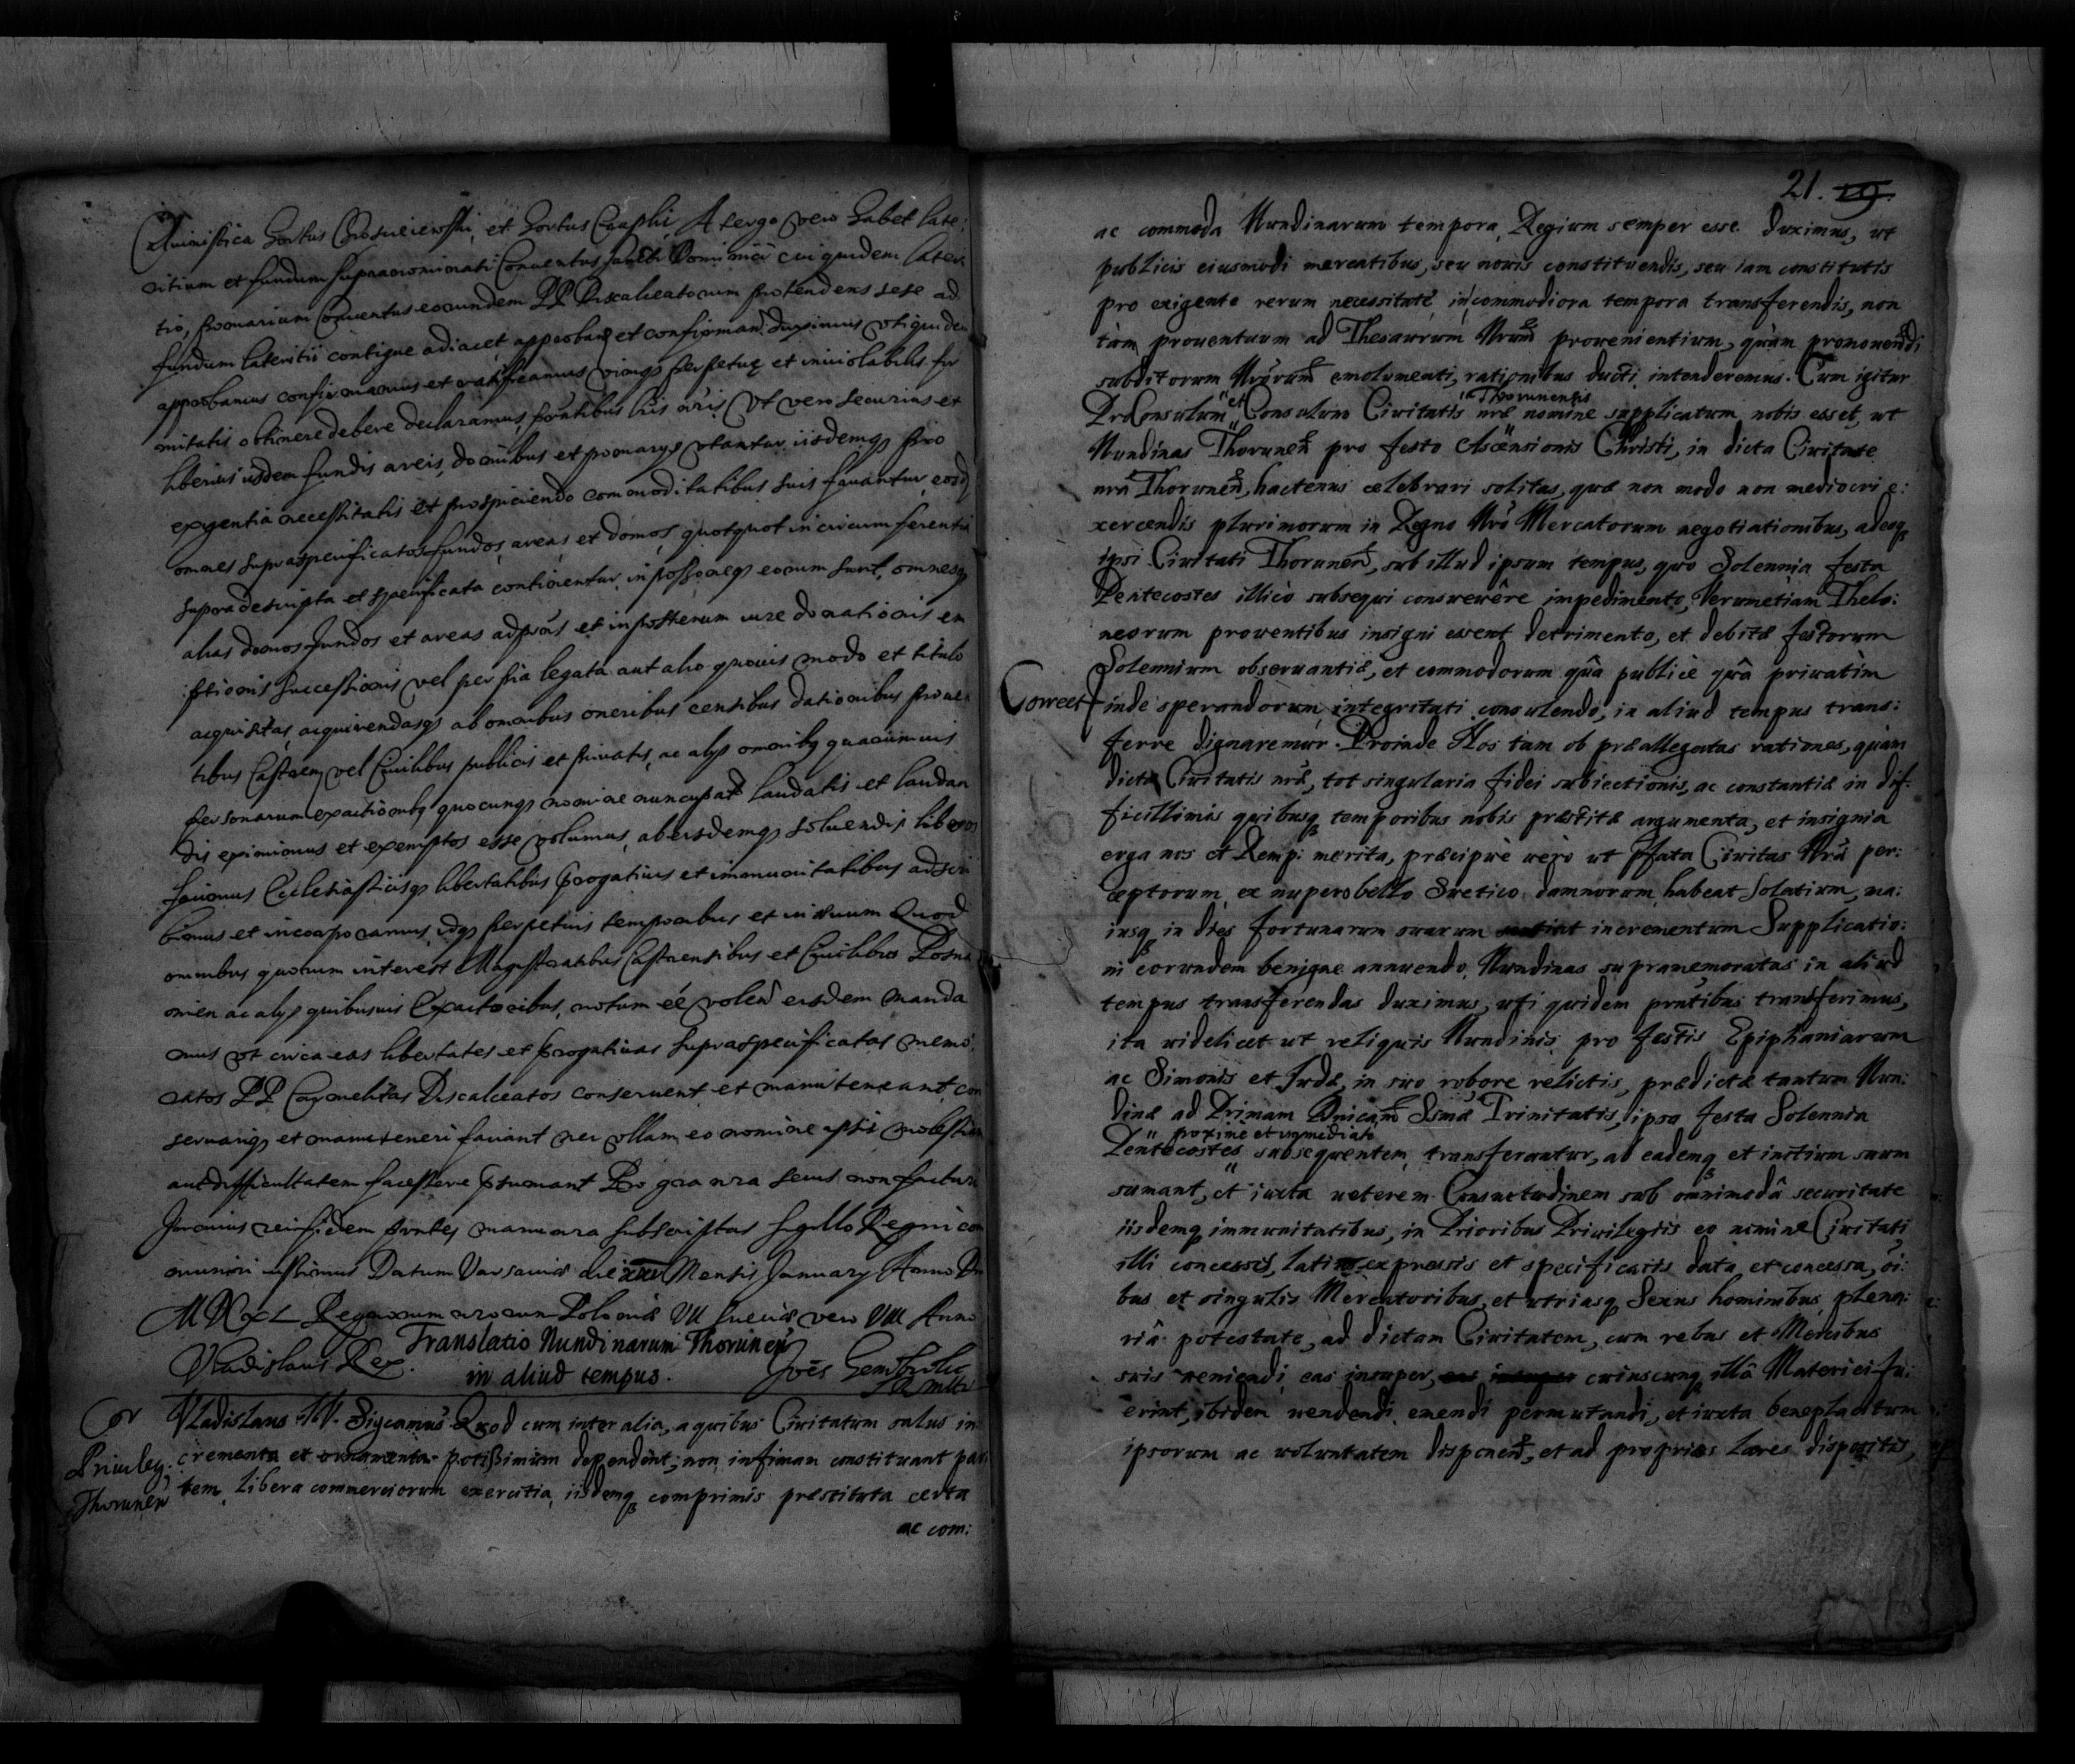 Quinistica hortus Grosuciewski, et hortus Czapski, A tergo vero habet late:
ritium et fundum supranominati Conventus Sancti Dominici cui quidem lateri
tio, pomarium Conventus eorundem PP Discalceatorum protendens sese ad
fundum lateritii contigue adiacet, approban et confirmand duximus utiquidem
approbamus confirmamus et ratificamus vimq perpetuę et inviolabilis fir
mitatis obtinere debere declaramus, pñtibus lris nris Ut vero securius et
liberius iisdem fundis areis, domibus et pomarys utantur iisdemq pro
exigentia necessitatis et prospiciendo commoditatibus suis fruantur, eosd
omnes supraspecificatos fundos areas et domos quotquot in circumferentia
supra descripta et specificata continentur in possioneq eorum sunt, omnesq
alias domos fundos et areas adprñs et in posterum iure donationis em
ptionis successionis vel per pia legata aut alio quovis modo et titulo
acquisitas acquirendasq ab omnibus oneribus censibus dationibus proven
tibus Castren vel Civilibus publicis et privatis, ac alys omnibq quarumvis
personarum exactionibq quocunq nomine nuncupatis laudatis et laudan
dis eximimus et exemptos esse volumus, ab eisdemq solvendis liberos
facimus Ecclesiasticisq libertatibus prrogativis et immunitatibus adscri
bimus et incorporamus, idq perpetuis temporibus et in ævum Quod
omnibus quorum interest Magistratibus Castrensibus et Civilibus Posna
nien ac alys quibusvis Exactoribus, notum eē volen eisdem manda
mus ut circa eas libertates et prrogativas supraspecificatas memo:
ratos PP Carmelitas Discalceatos conservent et manuteneant, con
servariq et manuteneri faciant nec ullam eo nomine ipsis molestiam
aut difficultatem facessere prsumant Pro gra nra secus non facturi
In cuius rei fidem pñtes manu nra subscriptas sigillo Regni com
muniri iussimus Datum Varsaviæ die xxv Mensis January Anno Dni
MDCXL Regnorum nrorum Poloniæ VII Sueciæ vero VIII Anno
Vladislaus Rex.
Translatio Nundinarum Thorunen
in aliud tempus.
Cor
Privileg.
Thorunen
Vladislaus IV. Sigcamus Quod cum inter alia, a quibus Civitatum salus in
crementa et ornamenta potißimum dependent, non infimam constituant par
tem, libera commerciorum exercitia, iisdemq comprimis præstituta certa
ac com:
21. 19.
ac commoda Nundinarum tempora, Regium semper esse duximus, ut
publicis eiusmodi mercatibus, seu novis constituendis, seu iam constitutis
pro exigente rerum necessitate, in commodiora tempora transferendis, non
tàm proventuum ad Thesaurum Nrum provenientium, quàm promovendi
subditorum Nrorum emolumenti, rationibus ducti, intenderemus. Cum igitur
PrôConsulum et Consulum Civitatis nræ Thorunensis nomine supplicatum nobis esset, ut
Nundinas Thorunen pro festo Ascensionis Christi, in dicta Civitate
nra Thorunen, hactenus celebrari solitas, quæ non modo non mediocri e:
xercendis plurimorum in Regno Nro Mercatorum negotiationibus, adeoq
ipsi Civitati Thorunen, sub illud ipsum tempus, quo Solennia festa
Pentecostes illicò subsequi consuevêre impedimento, Verumetiam Thelo:
neorum proventibus insigni essent detrimento, et debitæ festorum
Solennium observantiæ, et commodorum quâ publicè quâ privatìm
Correct
inde sperandorum, integritati consulendo, in aliud tempus trans:
ferre dignaremur. Proinde Nos tam ob præallegatas rationes, quàm
dictæ Civitatis nræ, tot singularia fidei subiectionis, ac constantiæ in dif:
ficillimis quibusq temporibus nobis præstitæ argumenta, et insignia
erga nos et Remp: merita, præcipuè verò ut pfata Civitas Nra per:
ceptorum, ex nupero bello Suetico, damnorum habeat solatium, ma:
iusq in dies fortunarum suarum incrementum Supplicatio:
ni eorundem benigne annuendo, Nundinas supramemoratas in aliud
tempus transferendas duximus, uti quidem pntibus transferimus,
ita videlicet ut reliquis Nundinis pro festis Epiphaniarum
ac Simonis et Judæ, in suo robore relictis, prædictæ tantum Nun:
dinæ ad Primam Dnicam Ssmæ Trinitatis, ipsa festa Solennia
Pentecostes proxime et immediate subsequentem, transferantur, ab eademq et initium suum
sumant, et iuxta veterem Consuetudinem sub omnimodâ securitate
iisdemq immunitatibus, in Prioribus Privilegiis eo nomine Civitati
illi concessis, latius expressis et specificatis, data et concessa, oi:
bus et singulis Mercatoribus, et utriusq Sexus hominibus, plena:
riâ potestate, ad dictam Civitatem, cum rebus et Mercibus
suis veniendi, eas insuper, cuiuscunq illæ Materiei fu:
erint, ibidem vendendi, emendi permutandi, et iuxta beneplacitum
ipsorum ac voluntatem disponend, et ad proprios lares dispositis,